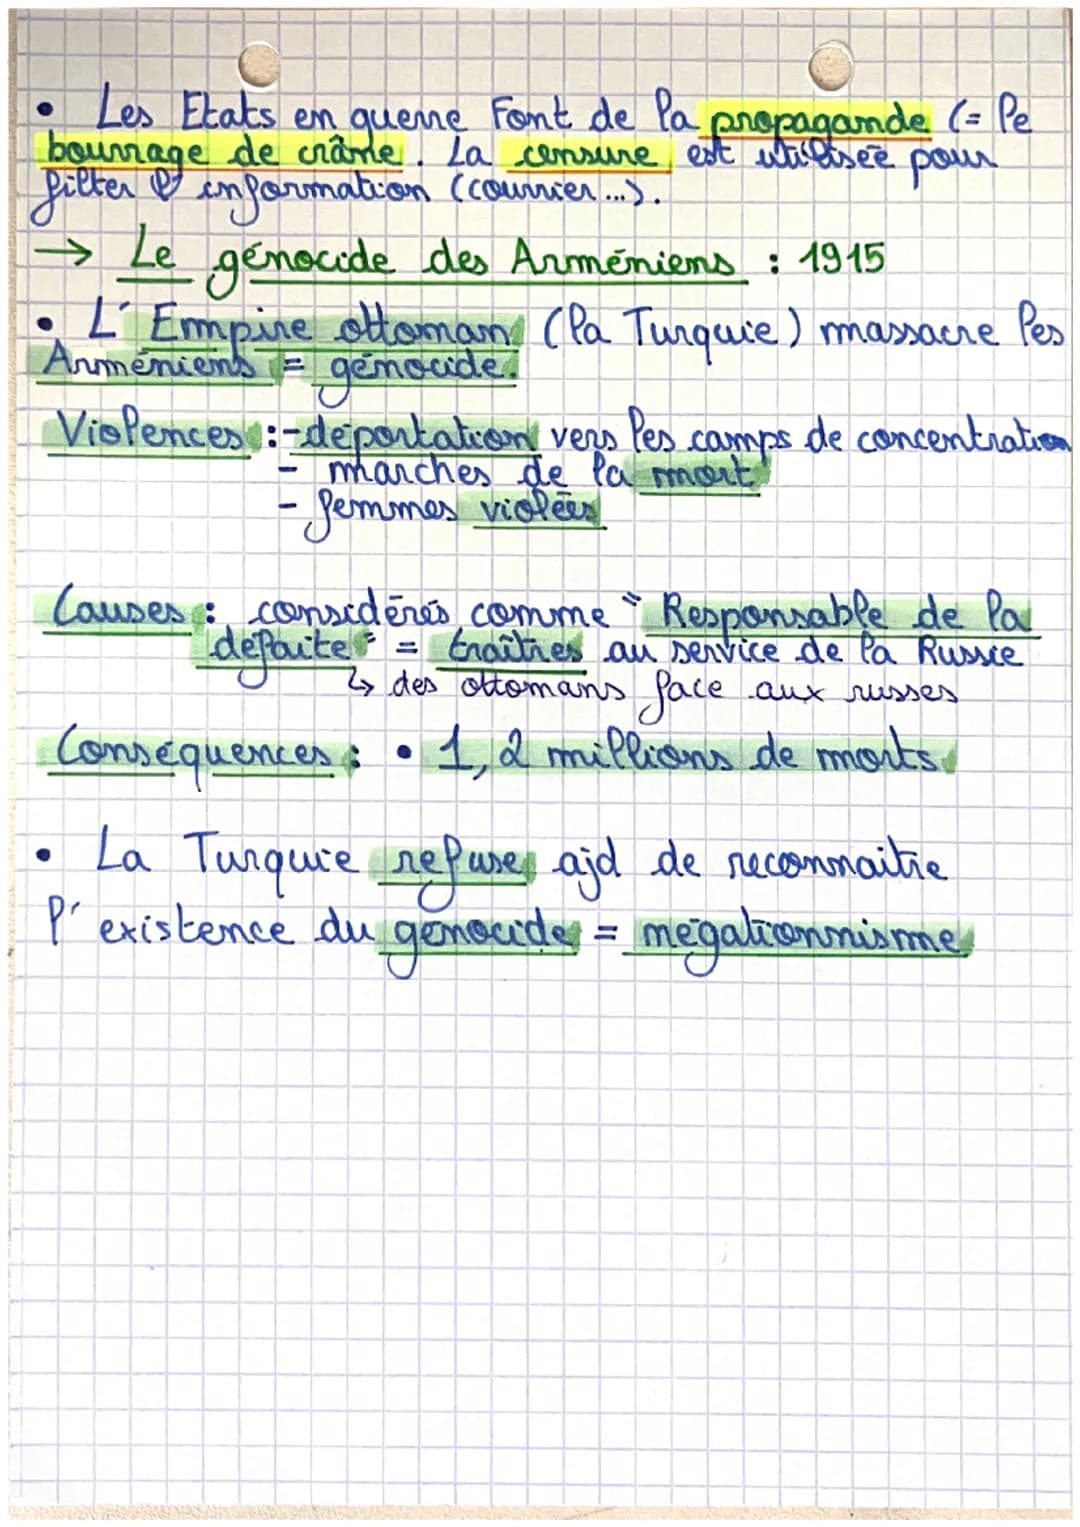 • Les Etats en guerre Font de la propagande (= le
bourrage de crâne. La censure est utilisée pour
filter l'information (courrier...).
→ Le génocide des Arméniens : 1915
• L'Empire ottoman (la Turquie) massacre les
Arméniens = génocide.
Violences : - déportation vers les camps de concentration
- marches de la mort
- femmes violées
Causes : considérés comme "Responsable de la
défaite" = traîtres au service de la Russie
↳ des ottomans face aux russes
Conséquences : • 1,2 millions de morts
• La Turquie refuse ajd de reconnaitre
l'existence du génocide = négationnisme